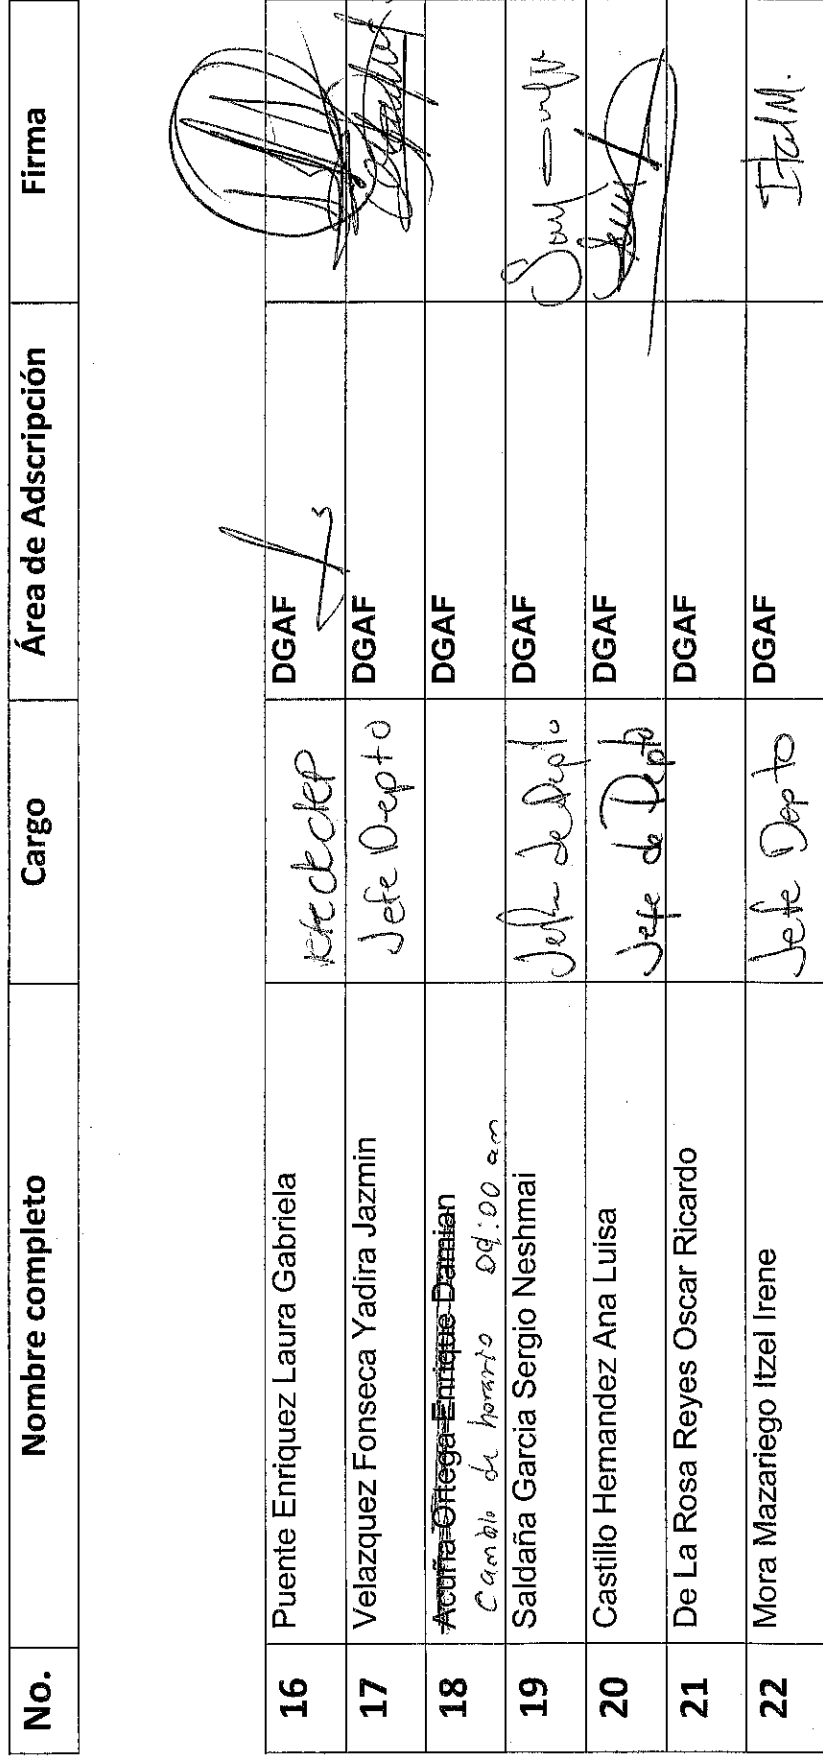 No. Nombre completo Cargo Área de Adscripción Firma
16 Puente Enriquez Laura Gabriela Jefe de dep DGAF
17 Velazquez Fonseca Yadira Jazmin Jefe Depto DGAF
18 Acuña Ortega Enrique Damian DGAF
Cambio de horario 09:00 am
19 Saldaña Garcia Sergio Neshmai Jefe de Depto DGAF
20 Castillo Hernandez Ana Luisa Jefe de Depto DGAF
21 De La Rosa Reyes Oscar Ricardo DGAF
22 Mora Mazariego Itzel Irene Jefe Depto DGAF